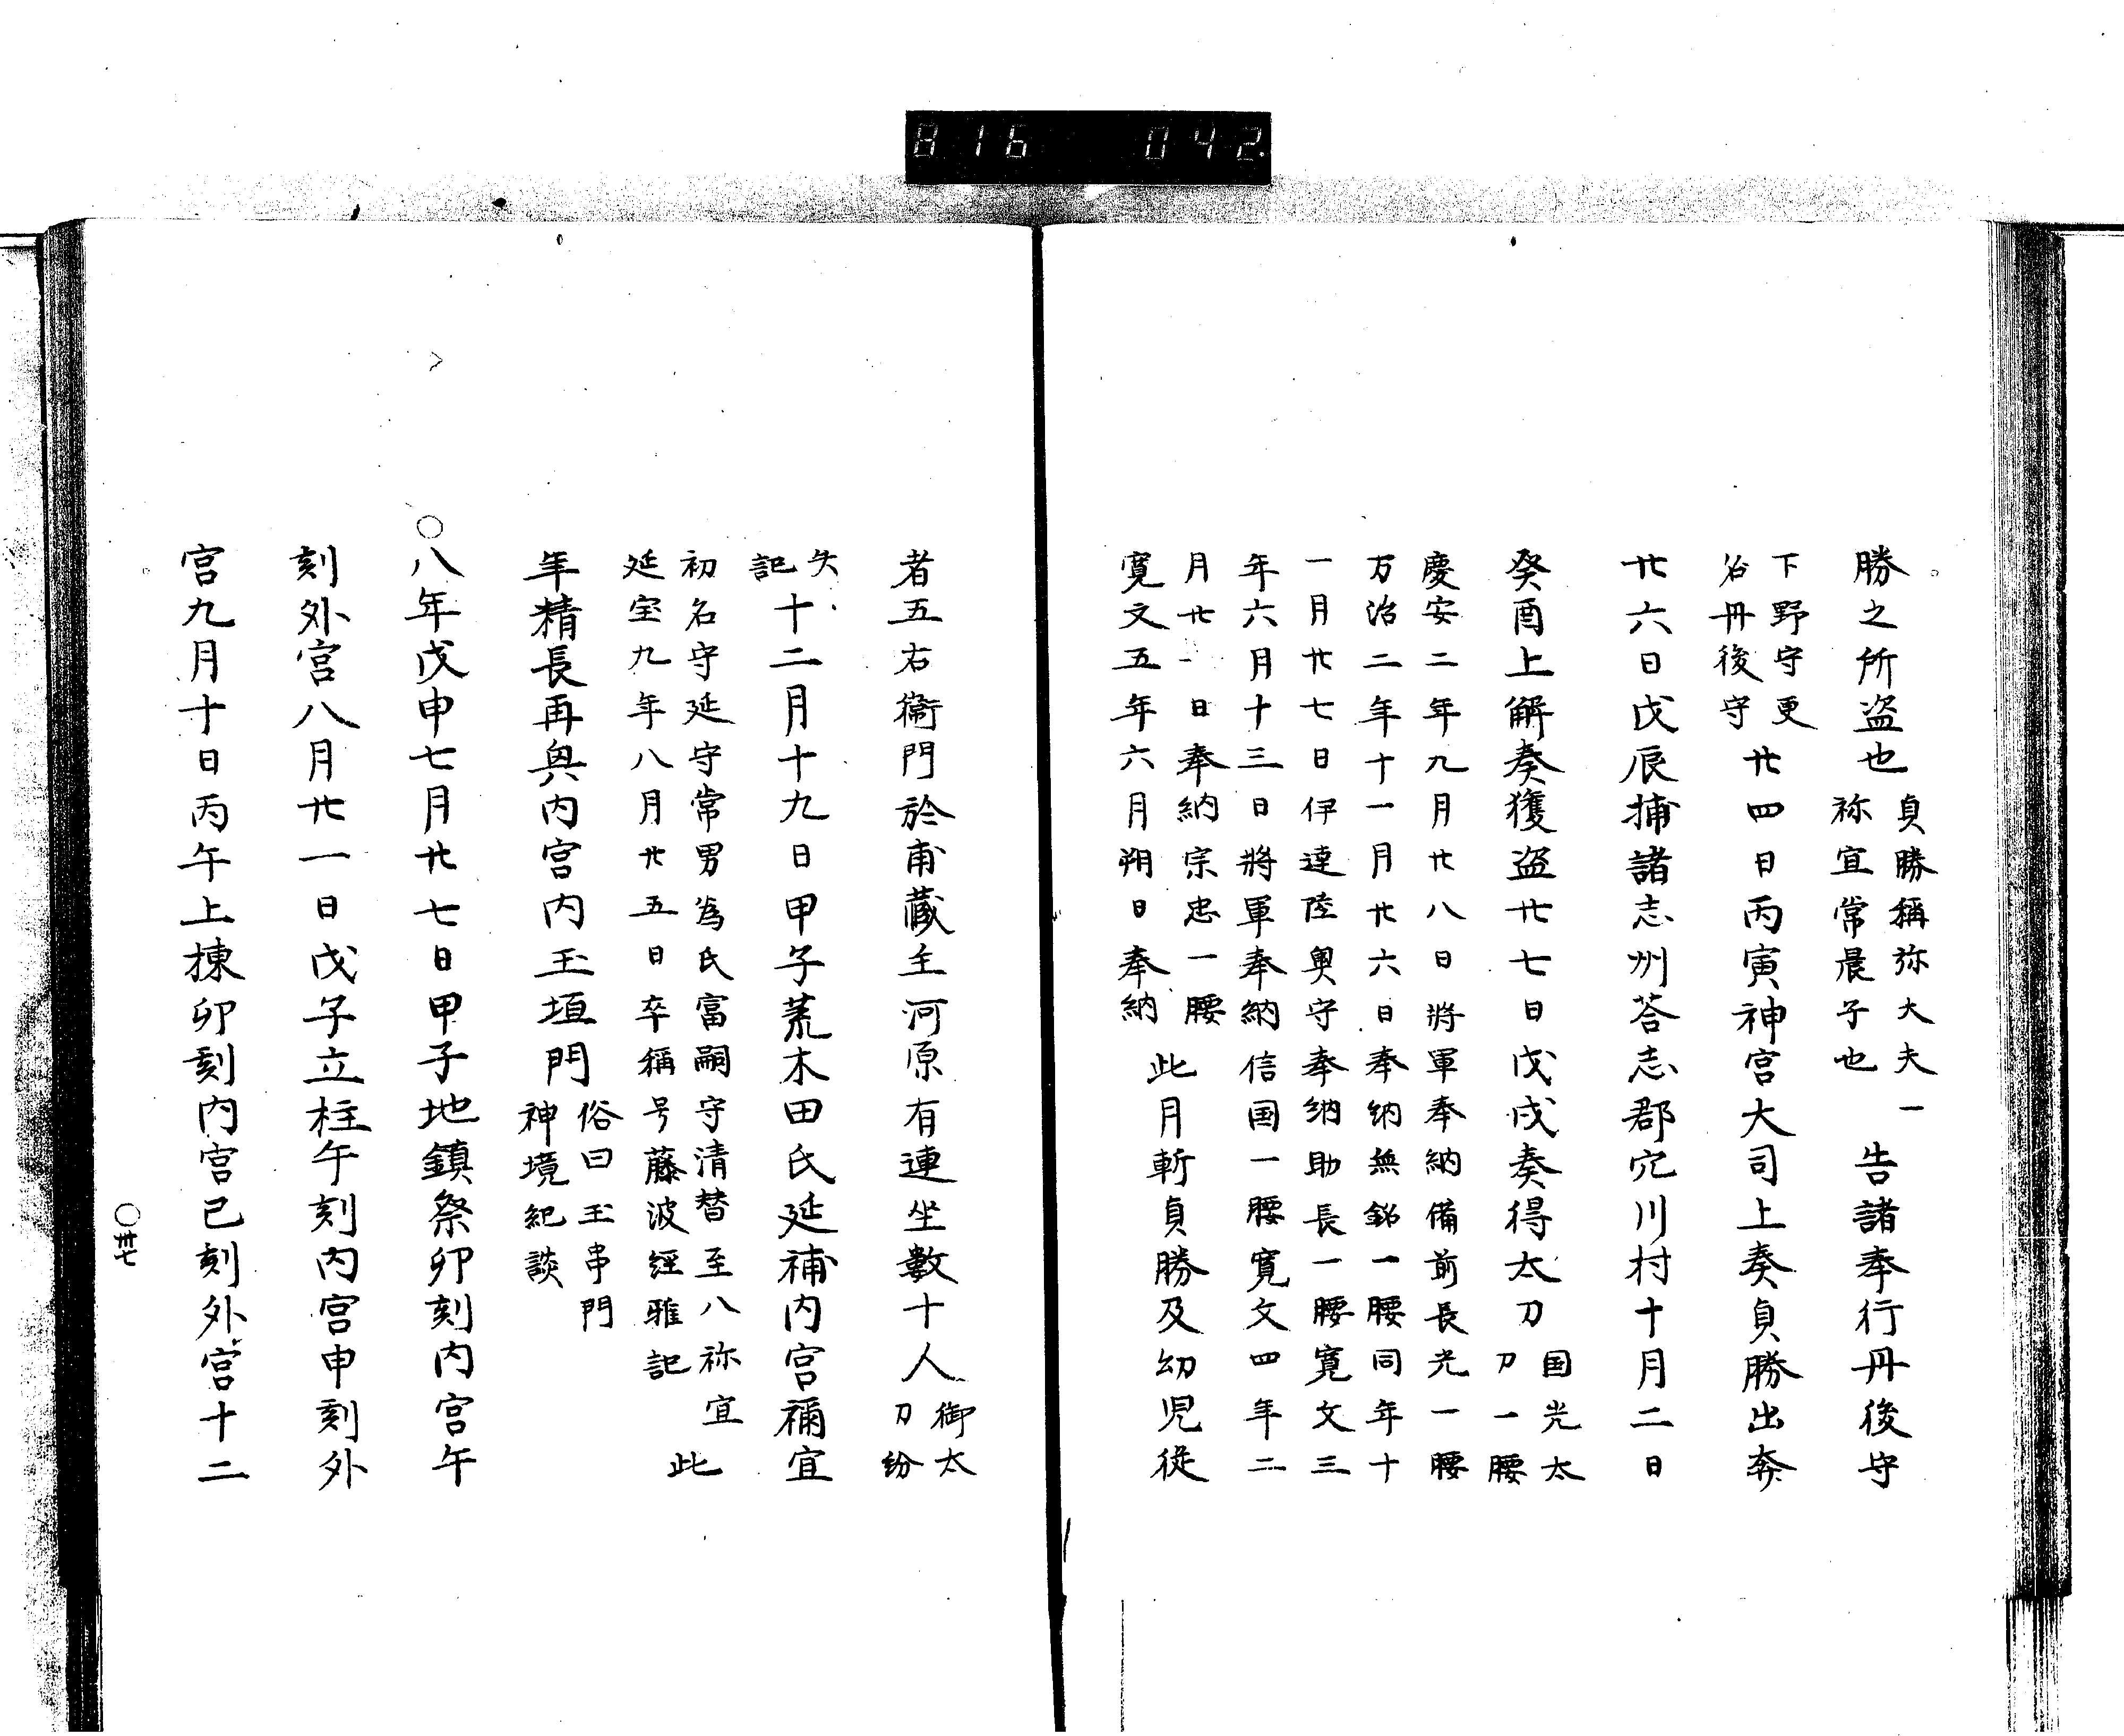 816 042
勝之所盗也
貞勝稱弥大夫一
祢宜常晨子也
告諸奉行丹後守
下野守更
名丹後守
廿四日丙寅神宮大司上奏貞勝出奔
廿六日戊辰捕諸志州荅志郡穴川村十月二日
癸酉上解奏獲盗廿七日戊戌奏得太刀
国光太
刀一腰
慶安二年九月廿八日將軍奉納備前長光一腰
万治二年十一月廿六日奉納無銘一腰同年十
一月廿七日伊達陸奥守奉納助長一腰寛文三
年六月十三日將軍奉納信国一腰寛文四年二
月廿一日奉納宗忠一腰
寛文五年六月朔日奉納
此月斬貞勝及幼児従
者五右衛門於甫蔵主河原有連坐數十人
御太
刀紛
失
記
十二月十九日甲子荒木田氏延補内宮禰宜
初名守延守常男為氏富嗣守清替至八祢宜
延宝九年八月廿五日卒稱号藤波経雅記
此
年精長再興内宮内玉垣門
俗曰玉串門
神境紀談
○八年戊申七月廿七日甲子地鎮祭卯刻内宮午
刻外宮八月廿一日戊子立柱午刻内宮申刻外
宮九月十日丙午上棟卯刻内宮巳刻外宮十二
○卅七